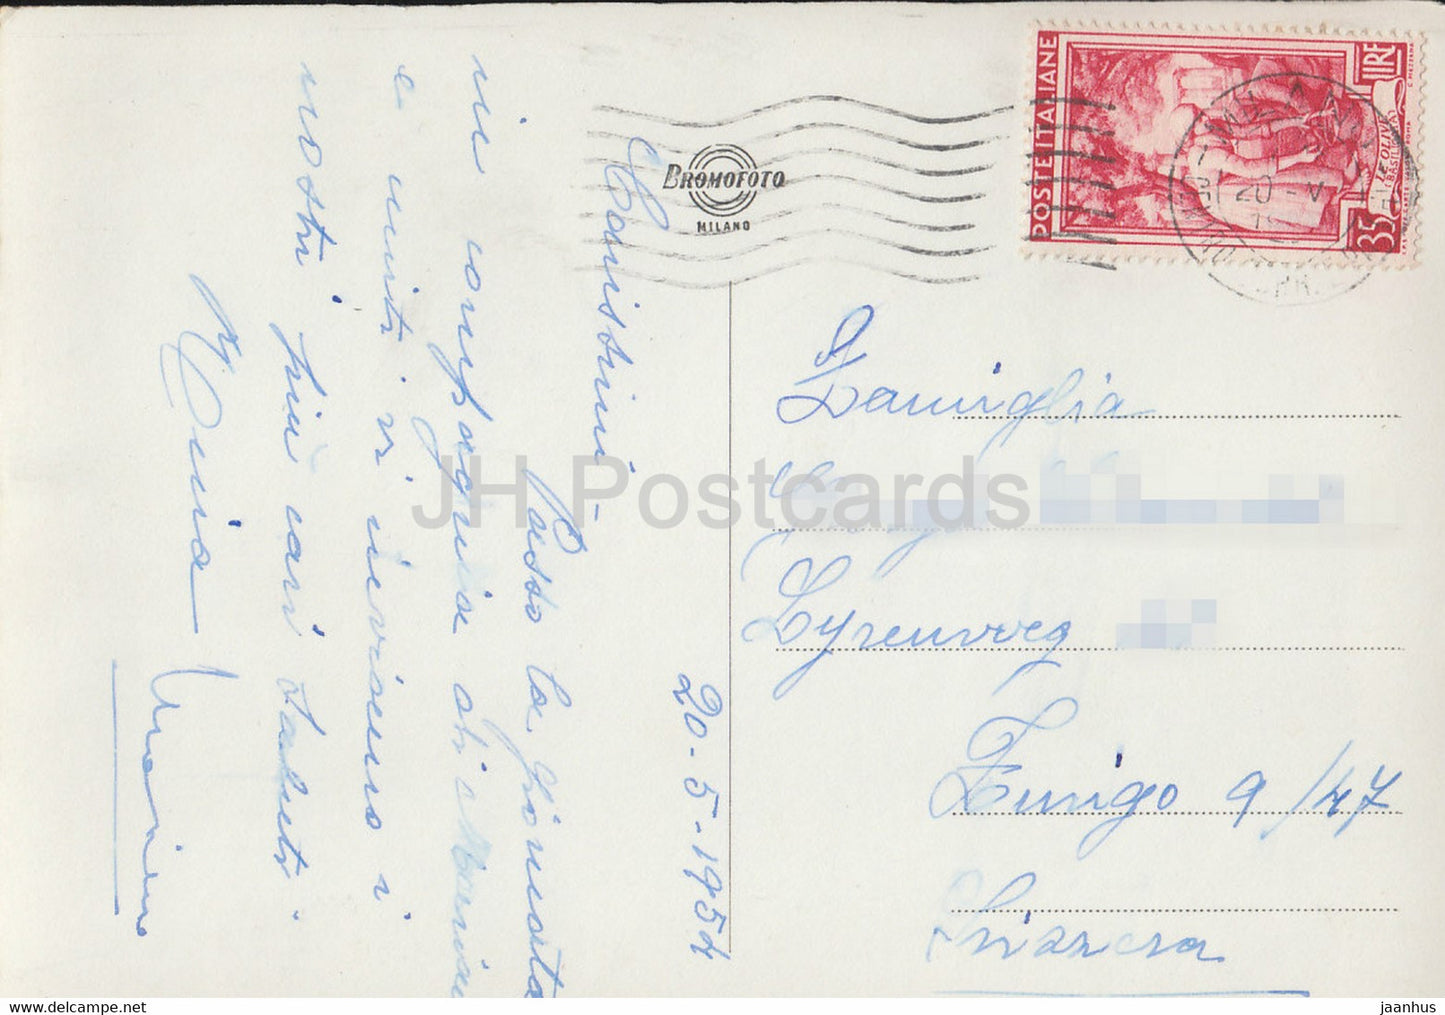 20-5-1954
Carissimi -
Passo la giornata
in compagnia di Mariano
e uniti vi inviamo i
nostri più cari saluti.
Mariano
BROMOFOTO
MILANO
POSTE ITALIANE
LIRE
35
LE OLIVE
BASILICATA
C. MEZZANA
MILANO
20-V
Famiglia
Lyrenweg
Zurigo 9/47
Svizzera
JH Postcards
www.delcampe.net
jaanhus